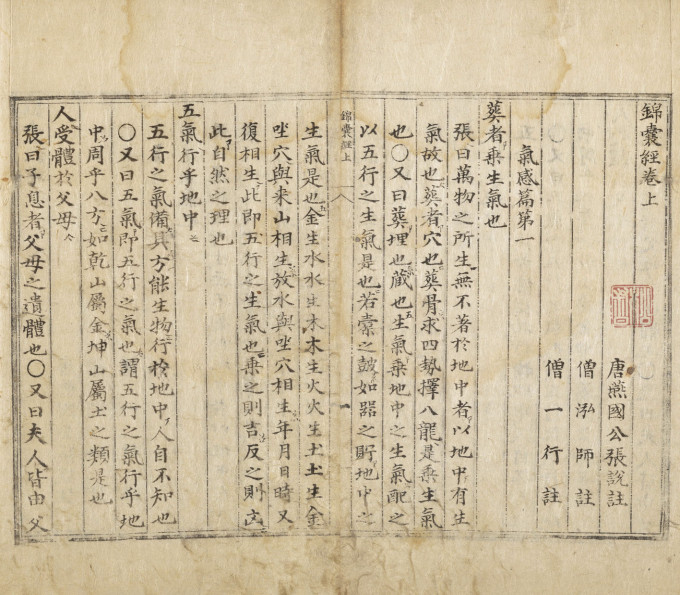 錦囊經卷上
唐燕國公張說註
僧泓師註
僧一行註
氣感篇第一
葬者乘生氣也
張曰萬物之所生無不著於地中者以地中有生
氣故也葬者穴也葬骨求四勢擇八龍是乘生氣
也〇又曰葬埋也藏也生氣乘地中之生氣配之
以五行之生氣是也若橐之鼓如器之貯地中之
錦囊經上
生氣是也金生水水生木木生火火生土土生金
坐穴與來山相生放水與坐穴相生年月日時又
復相生此即五行之生氣也乘之則吉反之則凶
此自然之理也
五氣行乎地中
五行之氣備具方能生物行於地中人自不知也
〇又曰五氣即五行之氣也謂五行之氣行乎地
中周乎八方如乾山屬金坤山屬土之類是也
人受體於父母
張曰子息者父母之遺體也〇又曰夫人皆由父